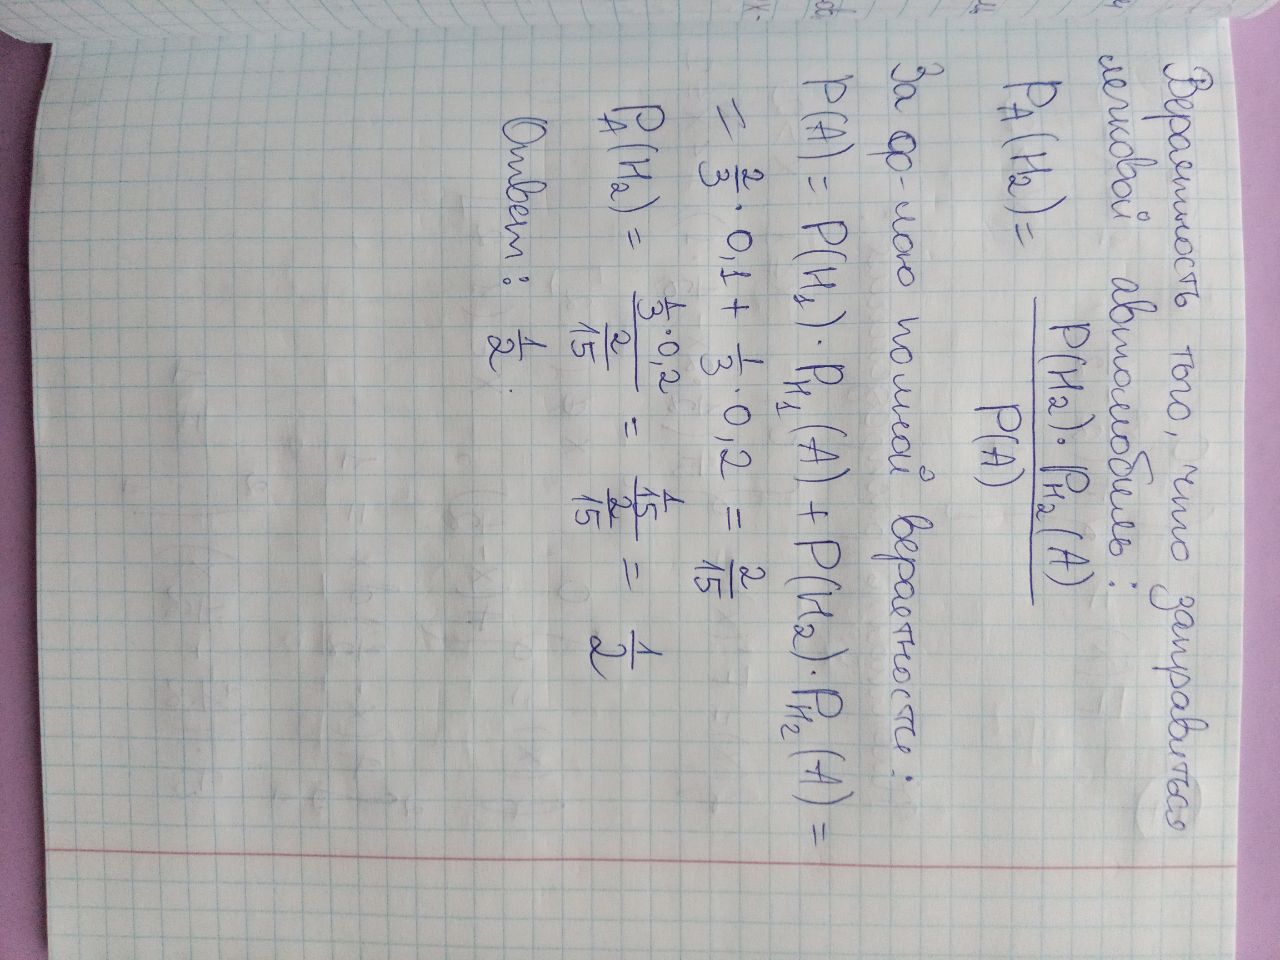 Вероятность того, что заправиться
легковой автомобиль:
P_A(H_2) = \frac{P(H_2) · P_{H_2}(A)}{P(A)}
За ф-лою полной вероятности:
P(A) = P(H_1) · P_{H_1}(A) + P(H_2) · P_{H_2}(A) =
= \frac{2}{3} · 0,1 + \frac{1}{3} · 0,2 = \frac{2}{15}
P_A(H_2) = \frac{\frac{1}{3} · 0,2}{\frac{2}{15}} = \frac{\frac{1}{15}}{\frac{2}{15}} = \frac{1}{2}
Ответ: \frac{1}{2}.